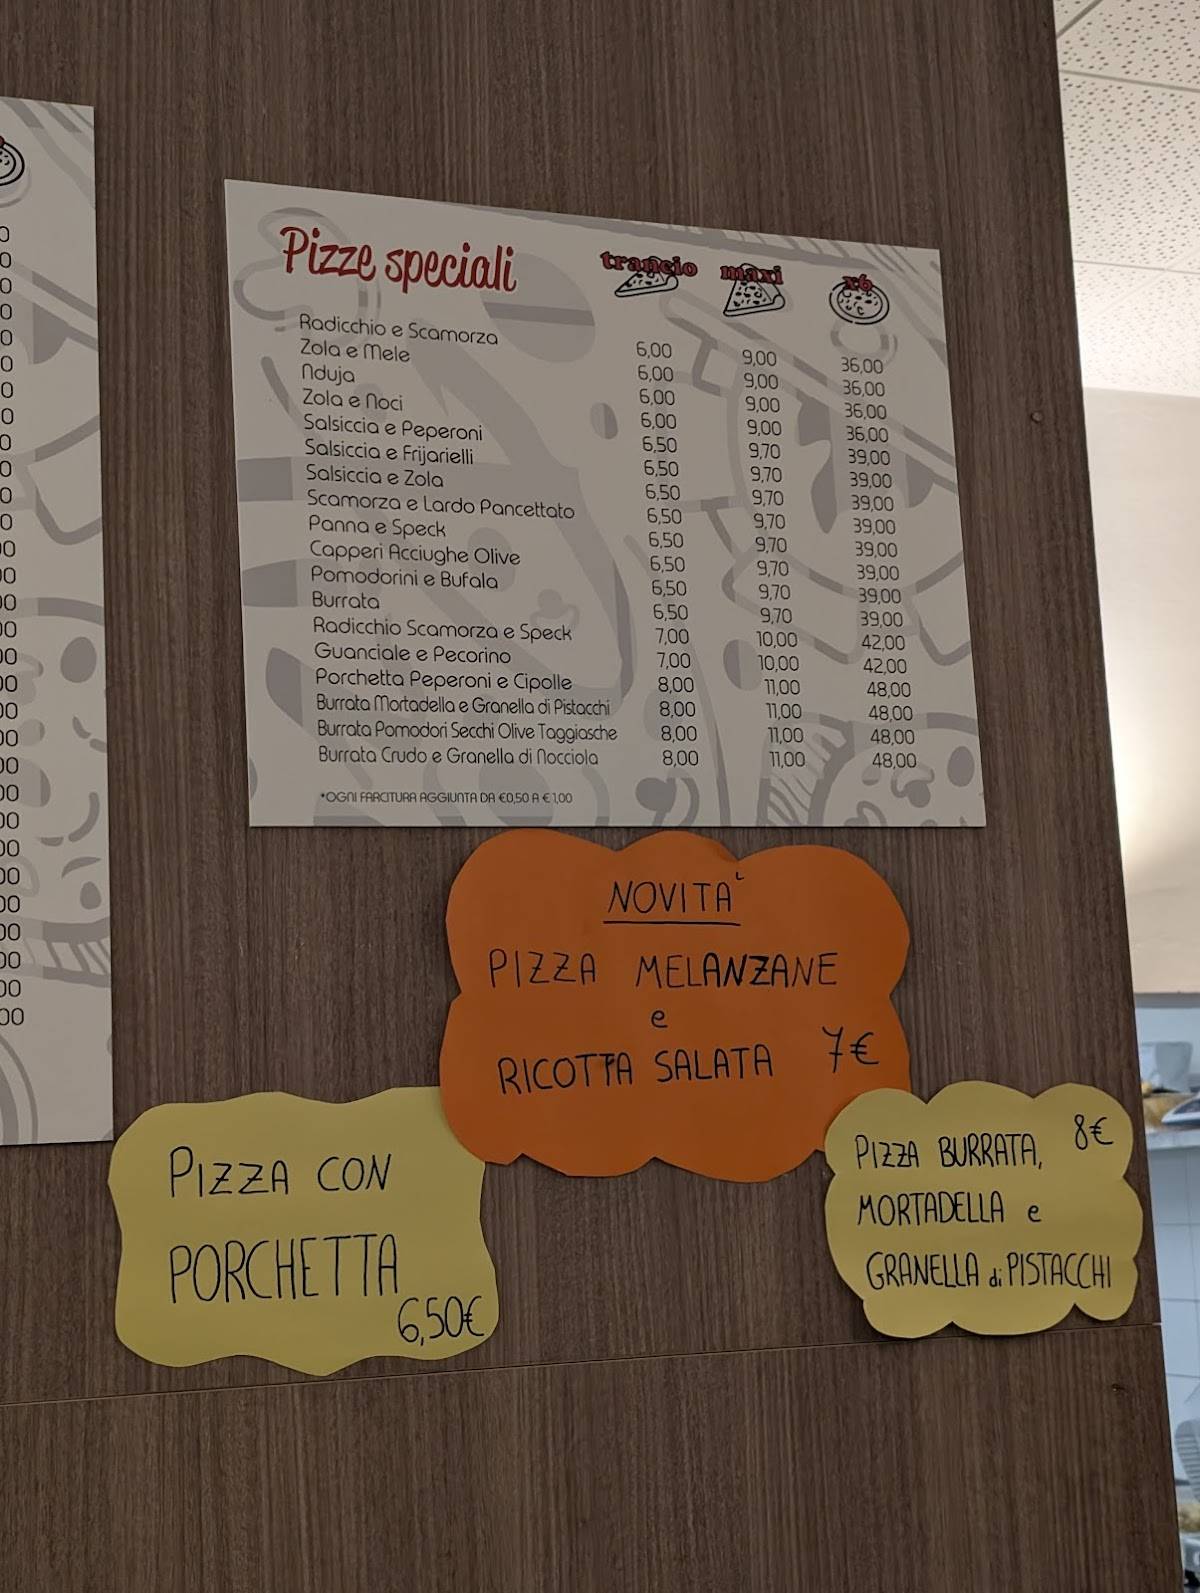 Pizze speciali trancio maxi x6
Radicchio e Scamorza 6,00 9,00 36,00
Zola e Mele 6,00 9,00 36,00
Nduja 6,00 9,00 36,00
Zola e Noci 6,00 9,00 36,00
Salsiccia e Peperoni 6,50 9,70 39,00
Salsiccia e Frijarielli 6,50 9,70 39,00
Salsiccia e Zola 6,50 9,70 39,00
Scamorza e Lardo Pancettato 6,50 9,70 39,00
Panna e Speck 6,50 9,70 39,00
Capperi Acciughe Olive 6,50 9,70 39,00
Pomodorini e Bufala 6,50 9,70 39,00
Burrata 6,50 9,70 39,00
Radicchio Scamorza e Speck 7,00 10,00 42,00
Guanciale e Pecorino 7,00 10,00 42,00
Porchetta Peperoni e Cipolle 8,00 11,00 48,00
Burrata Mortadella e Granella di Pistacchi 8,00 11,00 48,00
Burrata Pomodori Secchi Olive Taggiasche 8,00 11,00 48,00
Burrata Crudo e Granella di Nocciola 8,00 11,00 48,00
*OGNI FARCITURA AGGIUNTA DA €0,50 A €1,00
NOVITÀ
PIZZA MELANZANE
e
RICOTTA SALATA 7€
PIZZA CON
PORCHETTA
6,50€
PIZZA BURRATA, 8€
MORTADELLA e
GRANELLA di PISTACCHI